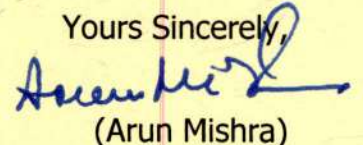 Yours Sincerely,
Arun Mishra
(Arun Mishra)